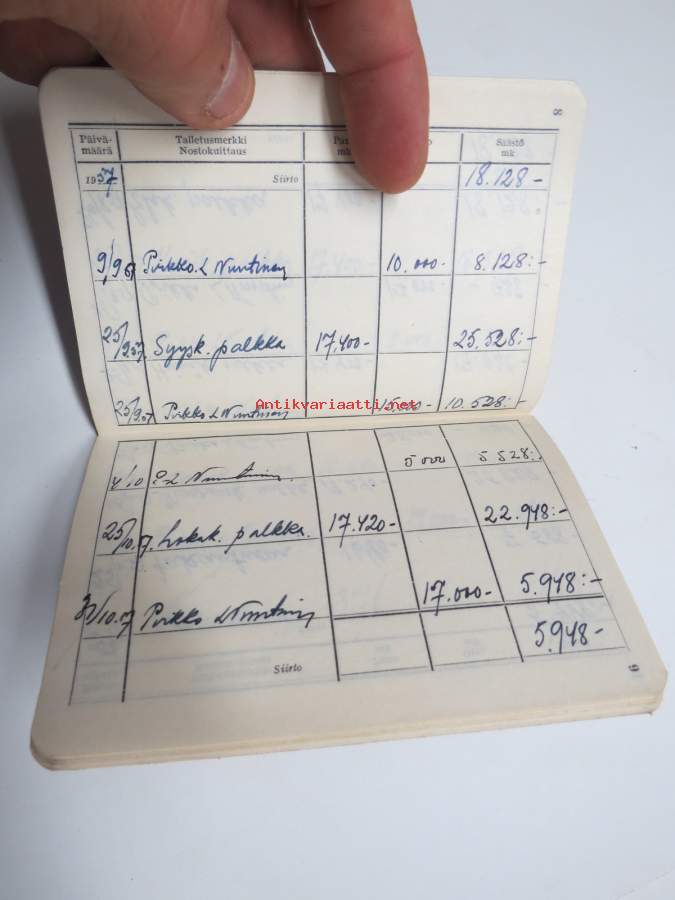 8
Päivä- Talletusmerkki Säästö
määrä Nostokuittaus mk
1957 Siirto 18.128-
9/9 57 Pirkko. L Nuutinen 10.000- 8.128:-
25/9 57 Syysk. palkka 17.400- 25.528:-
Antikvariaatti.net
25/9.57 Pirkko L Nuutinen 15.000- 10.528:-
4/10 P. L Nuutinen. 5000 5528:-
25/10.57. Lokak. palkka. 17.420- 22.948:-
31/10.57 Pirkko L Nuutinen 17.000- 5.948:-
5.948-
Siirto
9